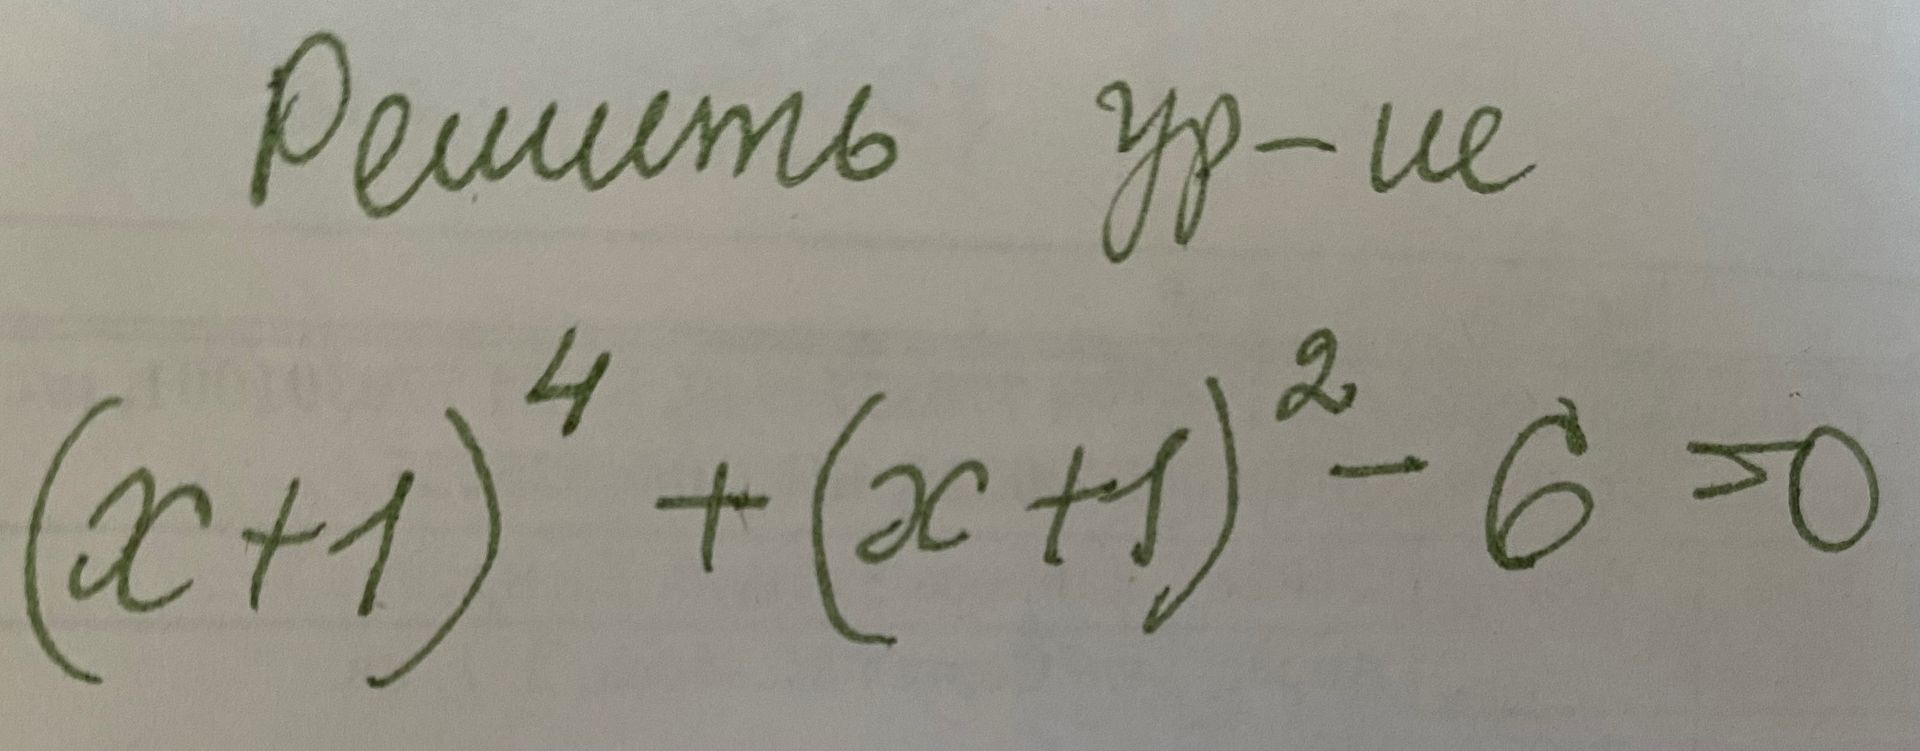 Решить ур-ие
(x+1)⁴ + (x+1)² - 6 = 0